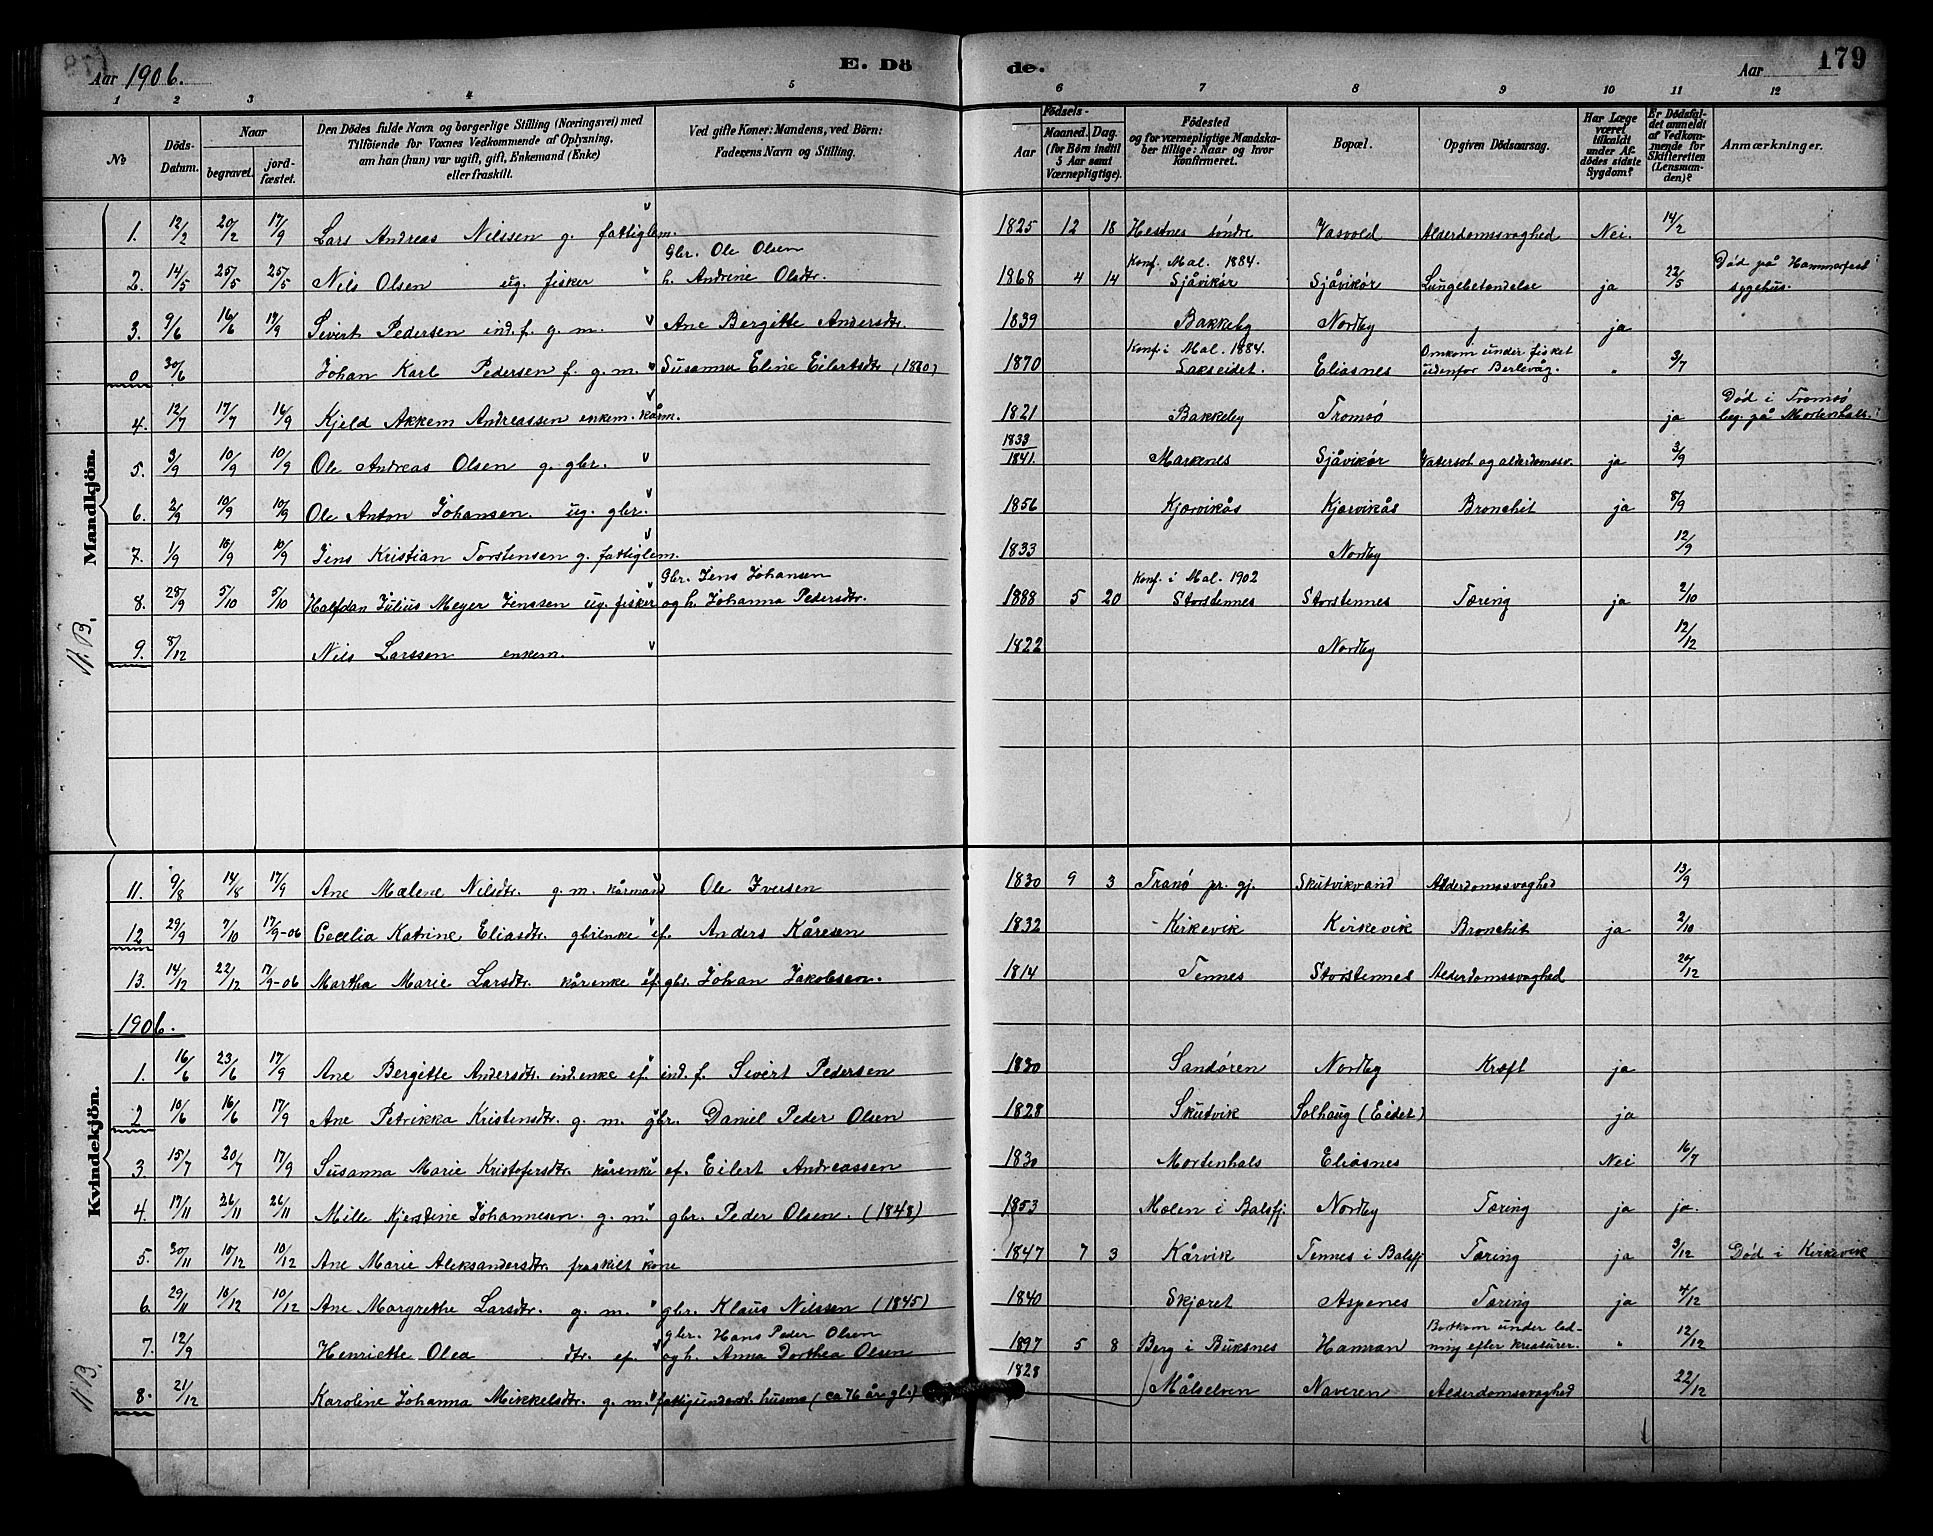 Aar 1906. E. Dö de. Aar 179
1 2 3 4 5 6 7 8 9 10 11 12
№ Döds-Datum. Naar begravet. jordfæstet. Den Dödes fulde Navn og borgerlige Stilling (Næringsvei) med Tilföiende for Voxnes Vedkommende af Oplysning, am han (hun) var ugift, gift, Enkemand (Enke) eller fraskilt. Ved gifte Koner: Mandens, ved Börn: Faderens Navn og Stilling. Födsels- Aar Maaned. Dag. (for Börn indtil 5 Aar samt Værnepligtige). Födested og for værnepligtige Mandskaber tillige: Naar og hvor Konfirmeret. Bopæl. Opgiven Dödsaarsag. Har Læge været tilkaldt under Afdödes sidste Sygdom? Er Dödsfaldet anmeldt af Vedkommende for Skifteretten (Lensmanden)? Anmærkninger.
Mandkjön.
1. 12/2 20/2 17/9 Lars Andreas Nilssen g. fattiglem. 1825 12 18 Hestnes söndre Vasvold Alderdomssvaghed Nei. 14/2
Gbr. Ole Olsen Konf. Mal. 1884. Död på Hammerfest
2. 14/5 25/5 25/5 Nils Olsen ug. fisker h. Andrine Olsdtr. 1868 4 14 Sjåvikör Sjåvikör Lungebetendelse ja 22/5 sygehus.
3. 9/6 16/6 17/9 Sivert Pedersen ind. f. g. m. Ane Bergitte Andersdtr. 1839 Bakkeby Nordby ja
Konf. i Mal. 1884. Omkom under fisket
0 30/6 Johan Karl Pedersen f. g. m. Susanna Eline Eilertsdtr (1860) 1870 Lakseidet. Eliasnes udenfor Berlevåg. " 3/7
Död i Tromsö
4. 12/7 17/7 16/9 Kjeld Akkem Andreassen enkem. kårm. 1821 Bakkeby Tromsö ja beg. på Mortenhals.
1833
5. 3/9 10/9 10/9 Ole Andreas Olsen g. gbr. 1841. Markenes Sjåvikör Vatersot og alderdomssv. ja 3/9
6. 2/9 10/9 10/9 Ole Anton Johansen. ug. gbr. 1856 Kjærvikås Kjærvikås Bronchit ja 8/9
7. 1/9 10/9 10/9 Jens Kristian Torstensen g. fattiglem. 1833 Nordby 12/9
Gbr. Jens Johansen Konf. i Mal. 1902
8. 28/9 5/10 5/10 Halfdan Julius Meyer Jenssen ug. fisker og h. Johanna Pedersdtr. 1888 5 20 Storstennes Storstennes Tæring ja 2/10
9. 8/12 Nils Larssen enkem. 1822 Nordby 12/12
N. B.
Kvindekjön.
11. 9/8 14/8 17/9 Ane Malene Nilsdtr. g. m. kårmand Ole Iversen 1830 9 3 Tranö pr. gj. Skutvikvand Alderdomssvaghed 13/9
12 29/9 7/10 17/9-06 Cecelia Katrine Eliasdtr. gbrenke ef. Anders Kåresen 1832 Kirkevik Kirkevik Bronchit ja 2/10
13. 14/12 22/12 17/9-06 Martha Marie Larsdtr. kårenke ef. gbr. Johan Jakobsen. 1814 Tennes Storstennes Alderdomssvaghed 24/12
1906.
1. 16/6 23/6 17/9 Ane Bergitte Andersdtr. ind. enke ef. ind. f. Sivert Pedersen 1830 Sandören Nordby Kræft ja
2 10/6 16/6 17/9 Ane Petrikka Kristensdtr. g. m. gbr. Daniel Peder Olsen 1828 Skutvik Solhaug (Eidet) ja
3. 15/7 20/7 17/9 Susanna Marie Kristofersdtr. kårenke ef. Eilert Andreassen 1830 Mortenhals Eliasnes Nei 16/7
4. 17/11 26/11 26/11 Mille Kjestine Johannesen. g. m. gbr. Peder Olsen. (1848) 1853 Malen i Balsfj. Nordby Tæring ja ja.
5. 30/11 10/12 10/12 Ane Marie Aleksandersdtr. fraskilt kone 1847 7 3 Kårvik Tennes i Balsfj Tæring ja 3/12 Död i Kirkevik
6. 29/11 10/12 10/12 Ane Margrethe Larsdtr. g. m. gbr. Klaus Nilssen (1845) 1840 Skjæret Aspenes Tæring ja 4/12
gbr. Hans Peder Olsen Bortkom under led-
7. 12/9 Henriette Olea dtr. ef. og h. Anna Dorthea Olsen 1897 5 8 Berg i Buksnes Hamran ning efter kreaturer. " 12/12
1828
8. 21/12 Karoline Johanna Mikkelsdtr. g. m. fattigunderst. husma (ca 76 år gl.) Målselven Naveren Alderdomssvaghed 22/12
N. B.